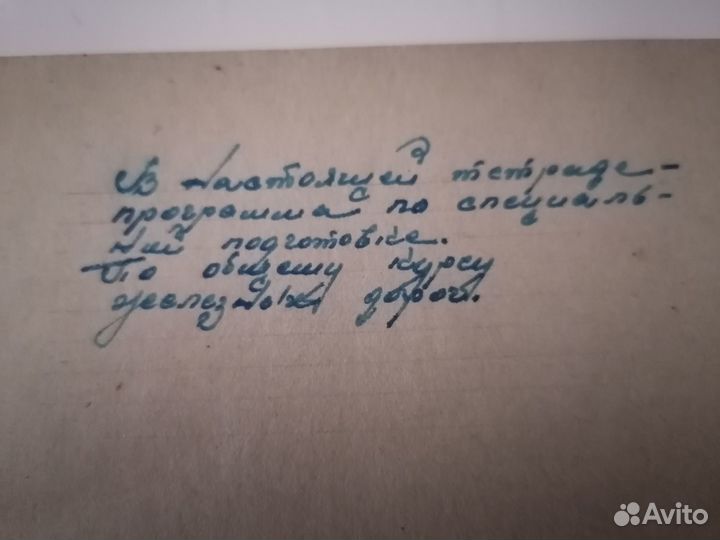 В настоящей тетраде -
программа по специаль -
ной подготовке.
По общему курсу
железных дорог.
Avito